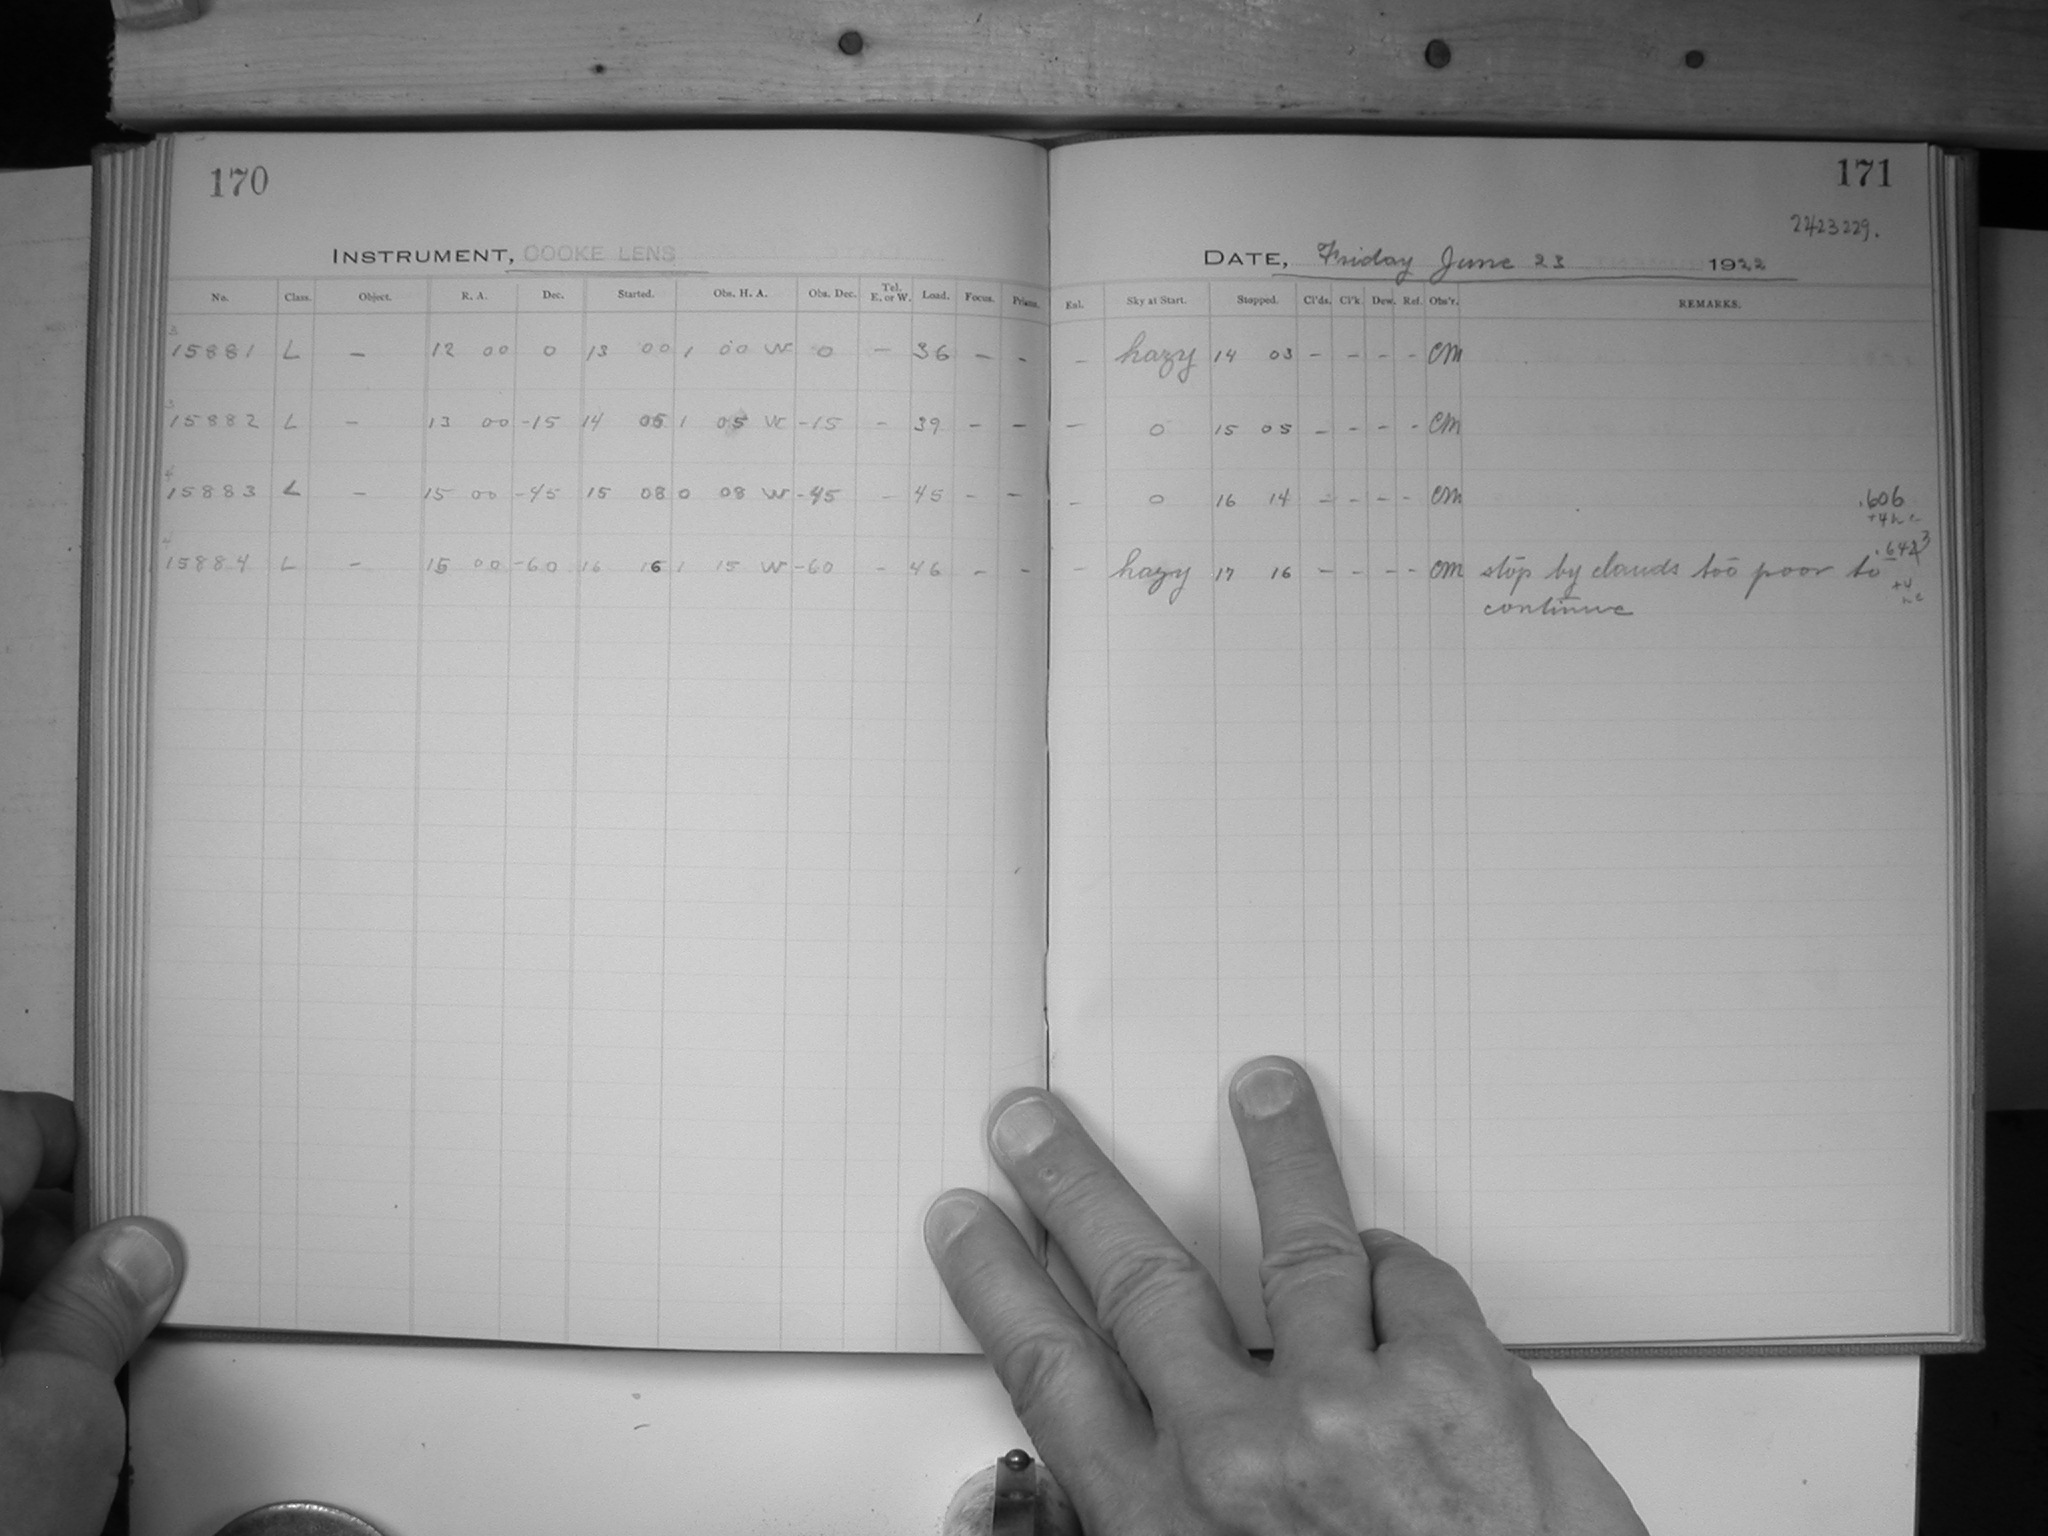 170
INSTRUMENT, COOKE LENS
No. Class. Object. R. A. Dec. Started. Obs. H. A. Obs. Dec. Tel. E. or W. Load. Focus. Prisms.
3
15881 L – 12 00 0 13 00 1 00 W 0 – 36 – –
3
15882 L – 13 00 -15 14 05 1 05 W -15 – 39 – –
4
15883 L – 15 00 -45 15 08 0 08 W -45 – 45 – –
4
15884 L – 15 00 -60 16 16 1 15 W -60 – 46 – –
171
2423229.
DATE, Friday June 23 1922
Sky at Start. Stopped. Cl'ds. Cl'k. Dew. Ref. Obs'r. REMARKS.
– hazy 14 03 – – – – CM
– 0 15 05 – – – – CM
– 0 16 14 – – – – CM .606
– hazy 17 16 – – – – CM stop by clouds too poor to
continue